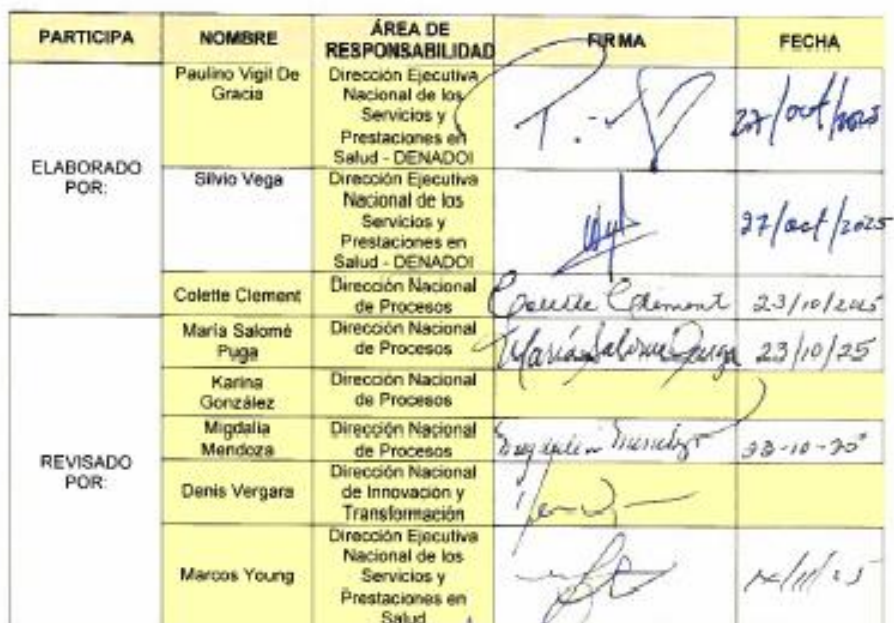 PARTICIPA NOMBRE ÁREA DE RESPONSABILIDAD FIRMA FECHA
ELABORADO POR:
Paulino Vigil De
Gracia
Dirección Ejecutiva
Nacional de los
Servicios y
Prestaciones en
Salud - DENADOI
27/oct/2025
Silvio Vega
Dirección Ejecutiva
Nacional de los
Servicios y
Prestaciones en
Salud - DENADOI
27/oct/2025
Colette Clement
Dirección Nacional
de Procesos
Colette Clement
23/10/2025
REVISADO POR:
María Salomé
Puga
Dirección Nacional
de Procesos
María Salomé Puga
23/10/25
Karina
González
Dirección Nacional
de Procesos
Migdalia
Mendoza
Dirección Nacional
de Procesos
Denis Vergara
Dirección Nacional
de Innovación y
Transformación
Marcos Young
Dirección Ejecutiva
Nacional de los
Servicios y
Prestaciones en
Salud